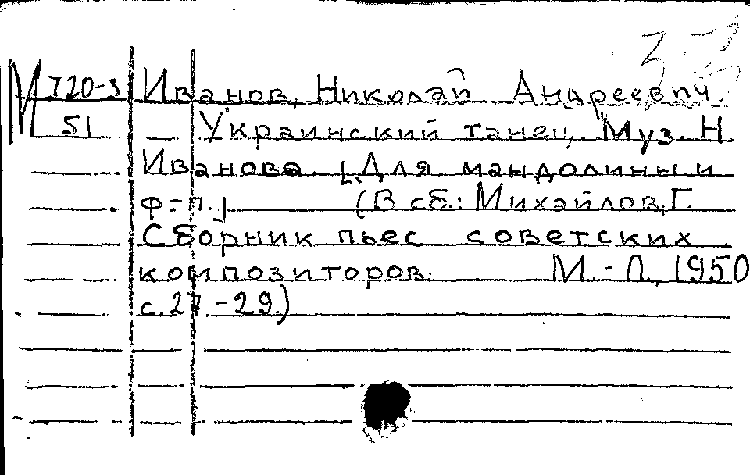 М 720-3 Иванов, Николай Андреевич
51 — Украинский танец. Муз. Н.
Иванова. [Для мандолины и
ф-п.] (В сб.: Михайлов, Г.
Сборник пьес советских
композиторов. М.-Л., 1950
с. 27.-29.)